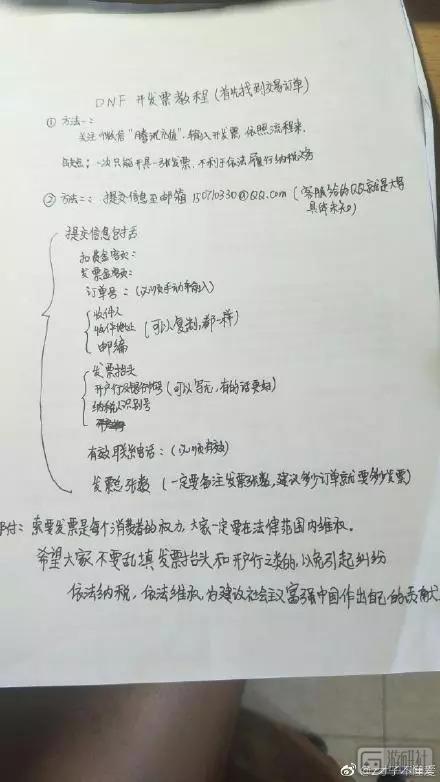 DNF 开发票教程(首先找到交易订单)
① 方法一:
关注微信"腾讯充值",输入开发票,依照流程来,
缺点:一次只能开具一张发票,不利于依法履行纳税义务
② 方法二:提交信息至邮箱 @QQ.com(客服给的QQ就是大号
具体未知)
提交信息包括
扣费金额:
发票金额:
订单号:(必须手动输入)
收件人
收件地址(可以复制,都一样)
邮编
发票抬头
开户行及银行帐号(可以写无,有的话更好)
纳税人识别号
有效联系电话:(必须有效)
发票总张数(一定要备注发票张数,建议多少订单就要多少发票)
附:索要发票是每个消费者的权力,大家一定要在法律范围内维权。
希望大家不要乱填发票抬头和开户行之类的,以免引起纠纷
依法纳税,依法维权,为建设社会主义富强中国作出自己的贡献
游研社